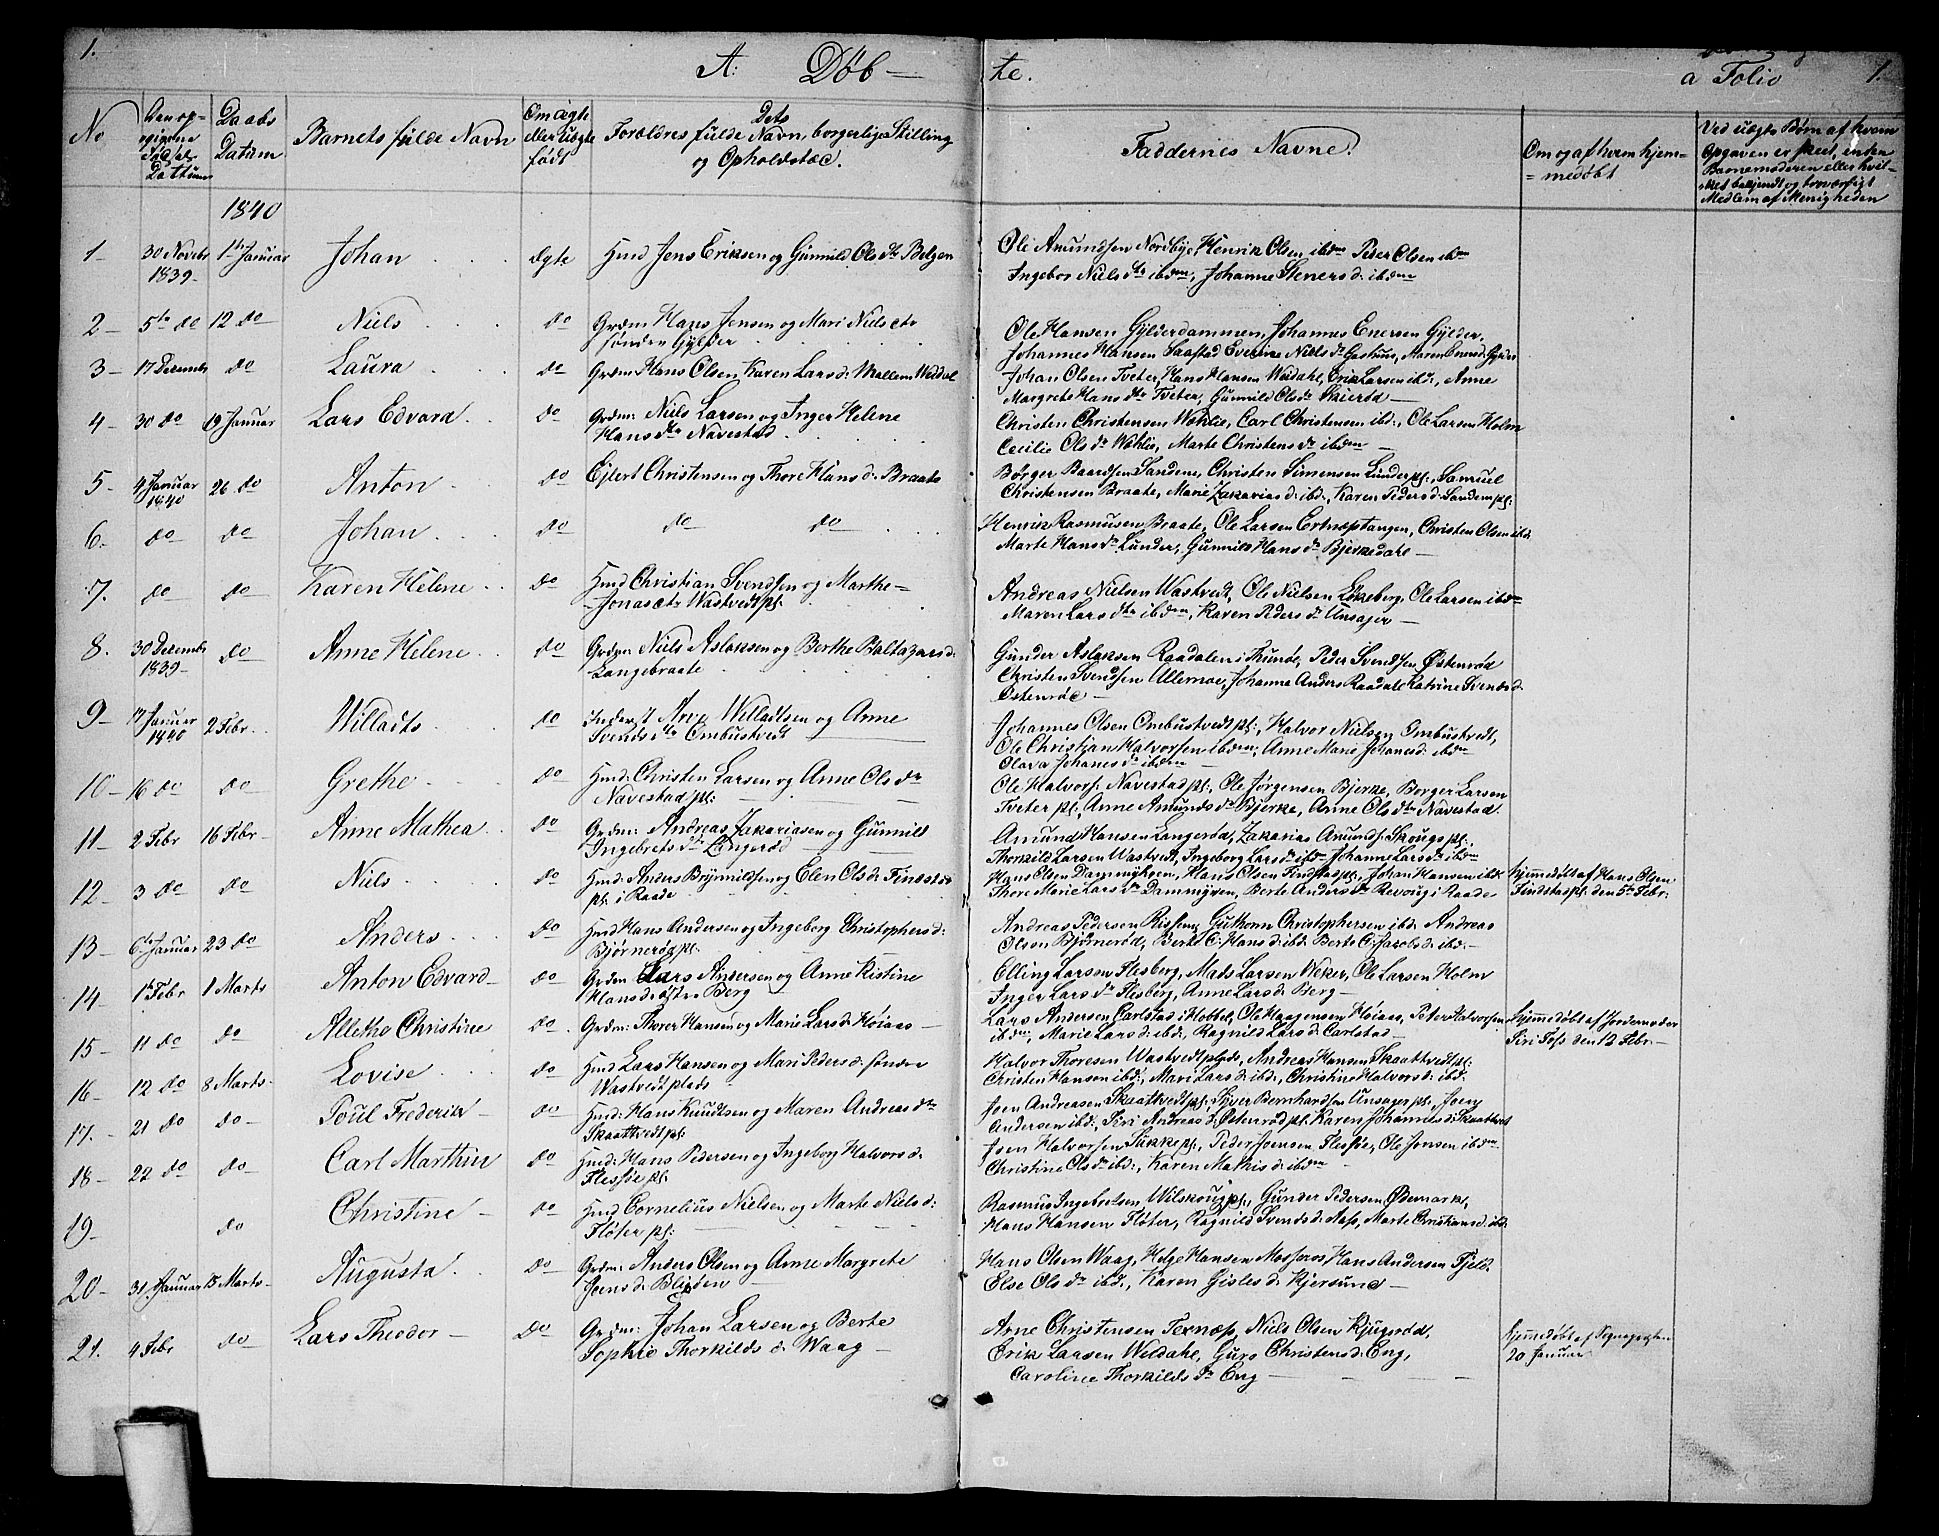 1.
A: Döb-
te.
a Folio 1.
No
Den op-
givne
Datum
Daabs
Datum
Barnets fulde Navn
Om ægte
eller uægte
født
Forældres fulde Navn, borgerlige Stilling
og Opholdstæd.
Faddernes Navne.
Om og af hvem hjem-
= medøbt
Ved uægte Børn af hvem
Opgaven er skeet, enten
Barnemoderen eller hvil-
ket bekjendt og troværdigt
Medlem af Menigheden
1840
1- 30 Novebr 1839- 1te Januar Johan ægte Hmd Jens Eriksen og Gunnild Olsdr Belgen
Ole Amundsen Nordbye, Henrik Olsen ibdm Peder Olsen ibdm
Ingebor Nielsdtr ibdm, Johanne Steners d. ibdm
2- 5te do 12 do Niels do Grdm Hans Jensen og Mari Nielsdtr
søndre Gylder
Ole Hansen Gylderdammen, Johannes Enersen Gylder,
Johannes Hansen Saastad Everine Niels dr Geshuus, Maren Eners d. Gylder
3- 17 Decembr do Laura do Grdm Hans Olsen, Karen Lars d: Mellem Weidal
Johan Olsen Tveter, Hans Hansen Weidahl, Erik Larsen ibd:, Anne
Margrete Hansdtr Tveter, Gunnild Olsdr Skierød-
4- 30 do 19 Januar Lars Edvard do Grdm: Niels Larsen og Inger Helene
Hansdtr Navestad
Christen Christensen Wøhlie, Carl Christensen ibd:, Ole Larsen Holm
Cecilie Olsdr Wøhlie, Marte Christens dr ibdm-
5- 4 Januar 1840 26 do Anton do Ejlert Christensen og Thore Hans d: Braate
Børger Baardsen Sandene, Christen Simensen Lunder pl:, Samuel
Christensen Braate, Marie Zakarias d: ibd:, Karen Peders d: Sandem pl:
6. do do Johan do do do
Henrik Rasmusen Braate, Ole Larsen Ertnæstangen, Christen Olsen ibd:
Marte Hansdr Lunder, Gunnild Hansdr Bjerkedahl-
7. do do Karen Helene do Hmd Christian Svendsen og Marthe-
Jonasdtr Wastvedt pl:
Andreas Nielsen Wastvedt, Ole Nielsen Løkeberg, Ole Larsen ibdm
Maren Larsdtr ibdm, Karen Peders dr Unsager-
8. 30 Decembr 1839- do Anne Helene do Grdm: Niels Aslaksen og Berthe Baltazars d:
Langebraate
Gunder Aslaksen Raadalen i Thunøe, Peder Svendsen Østenrød
Christen Svendsen Ullernæ, Johanne Anders Raadale Katrine Svends d.
Østenrød-
9- 17 Januar 1840 2 Febr. Willadts do Inderst Arve Willadtsen og Anne
Svendsdtr Ombustvedt
Johannes Olsen Ombustvedt pl:, Halvor Nielsen Ombustvedt,
Ole Christian Halvorsen ibdm, Anne Marie Johanesd: ibdm
Olava Johanesd: ibdm-
10- 16 do do Grethe do Hmd: Christen Larsen og Anne Olsdr
Navestad pl:
Ole Halvors: Navestad pl:, Ole Jørgensen Bjerke, Børger Larsen
Tveter pl:, Anne Amunds dr Bjerke, Anne Olsdtr Navestad.
11- 2 Febr 16 Febr- Anne Mathea do Grdm: Andreas Zakariasen og Gunnild
Ingebretsdtr Langerød
Amund Hansen Langerød, Zakarias Amunds: Skougs pl:,
Thorkild Larsen Wastvedt, Ingeborg Larsdr ibdm Johanne Larsdr ibdm
12- 3 do do Niels do Hmd: Anders Brynnildsen og Elen Ols d: Findstad
pl: i Raade
Hans Olsen Dammyren, Hans Olsen Findstad pl:, Johan Hansen ibd:
Thore Marie Larsdr Dammyren, Berte Anders dr Revoug i Raade
hjemmedøbt af Hans Olsen
Findstad pl: den 5te Febr:
13- 6te Januar 23 do Anders do Hmd Hans Andersen og Ingeborg Christophers d:
Bjørnerød pl:
Andreas Pedersen Rissen, Guthorm Christophersen ibd: Andreas
Olsen Bjørnerød, Berte C: Hans d: ibd: Berte C: Jacobs d: ibd:-
14- 1te Febr 1 Marts Anton Edvard- do Grdm: Lars Andersen og Anne Kistine
Hans d: østre Berg
Elling Larsen Flesberg, Mads Larsen Weker, Ole Larsen Holm
Inger Larsdr Flesberg, Anne Lars d: Berg-
15- 11 do do Allethe Christine do Grdm: Thorer Hansen og Marie Lars d: Høiaas-
Lars Andersen Carlstad i Hobbel, Ole Haagensen Høiaas, Peter Halvorsen
ibdm:, Marie Lars d: ibd:, Ragnild Lars d: Carlstad-
hjemmedøbt af Jordemoder
Siri Foss den 12 Febr:-
16- 12 do 8 Marts- Lovise do Hmd Lars Hansen og Mari Peders d: søndre
Wastvedt plads
Halvor Thoresen Wastvedt plads, Andreas Hansen Skaattvedt pl:
Christen Hansen ibd:, Mari Lars d: ibd:, Christine Halvors d: ibd:
17.- 21 do do- Poul Frederik- do Hmd: Hans Knudtsen og Maren Andreas dtr
Skaattvedt pl:
Joen Andreasen Skaattvedt pl:, Syver Bernhardsen Unsager pl:, Joen
Andersen ibd:, Siri Andreas d: Østenrød pl: Karen Johannes d: Skaattvet
18- 22 do do Carl Marthin do Hmd: Hans Pedersen og Ingeborg Halvors d:
Flessøe pl:
Joen Halvorsen Sukke pl:, Peder Joensen Flesøe, Ole Jonsen ibdm.
Christine Olsdr ibd:, Karen Mathis d: ibdm-
19- do Christine- do Hmd Cornelius Nielsen og Marte Niels d:
Fløter pl:
Rasmus Ingebretsen Wilskoug pl:, Gunder Pedersen Ødemark,
Hans Hansen Fløter, Ragnild Svends d: Aass, Marte Cristians d: ibd:
20- 31 Januar 15 Marts- Augusta do- Grdm: Anders Olsen og Anne Margrete
Joens d: Blixden-
Hans Olsen Waag, Helge Hansen Mosseros Hans Andersen Fjeld.
Else Olsdr ibd:, Karen Gisles d: Kjersund-
21. 4 Febr do Lars Theodor- Do Grdm: Johan Larsen og Berte
Sophie Thorkilds d: Waag-
Arne Christensen Texnæs, Niels Olsen Kjugerød,
Erik Larsen Weidahl, Guro Christens d: Eng,
Caroline Thorkilds dr Eng-
hjemmedøbt af Sognepresten
20 Januar